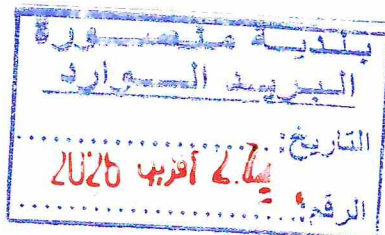 بلدية منصورة
البريد الوارد
التاريخ:
أفريل 2026
الرقم: